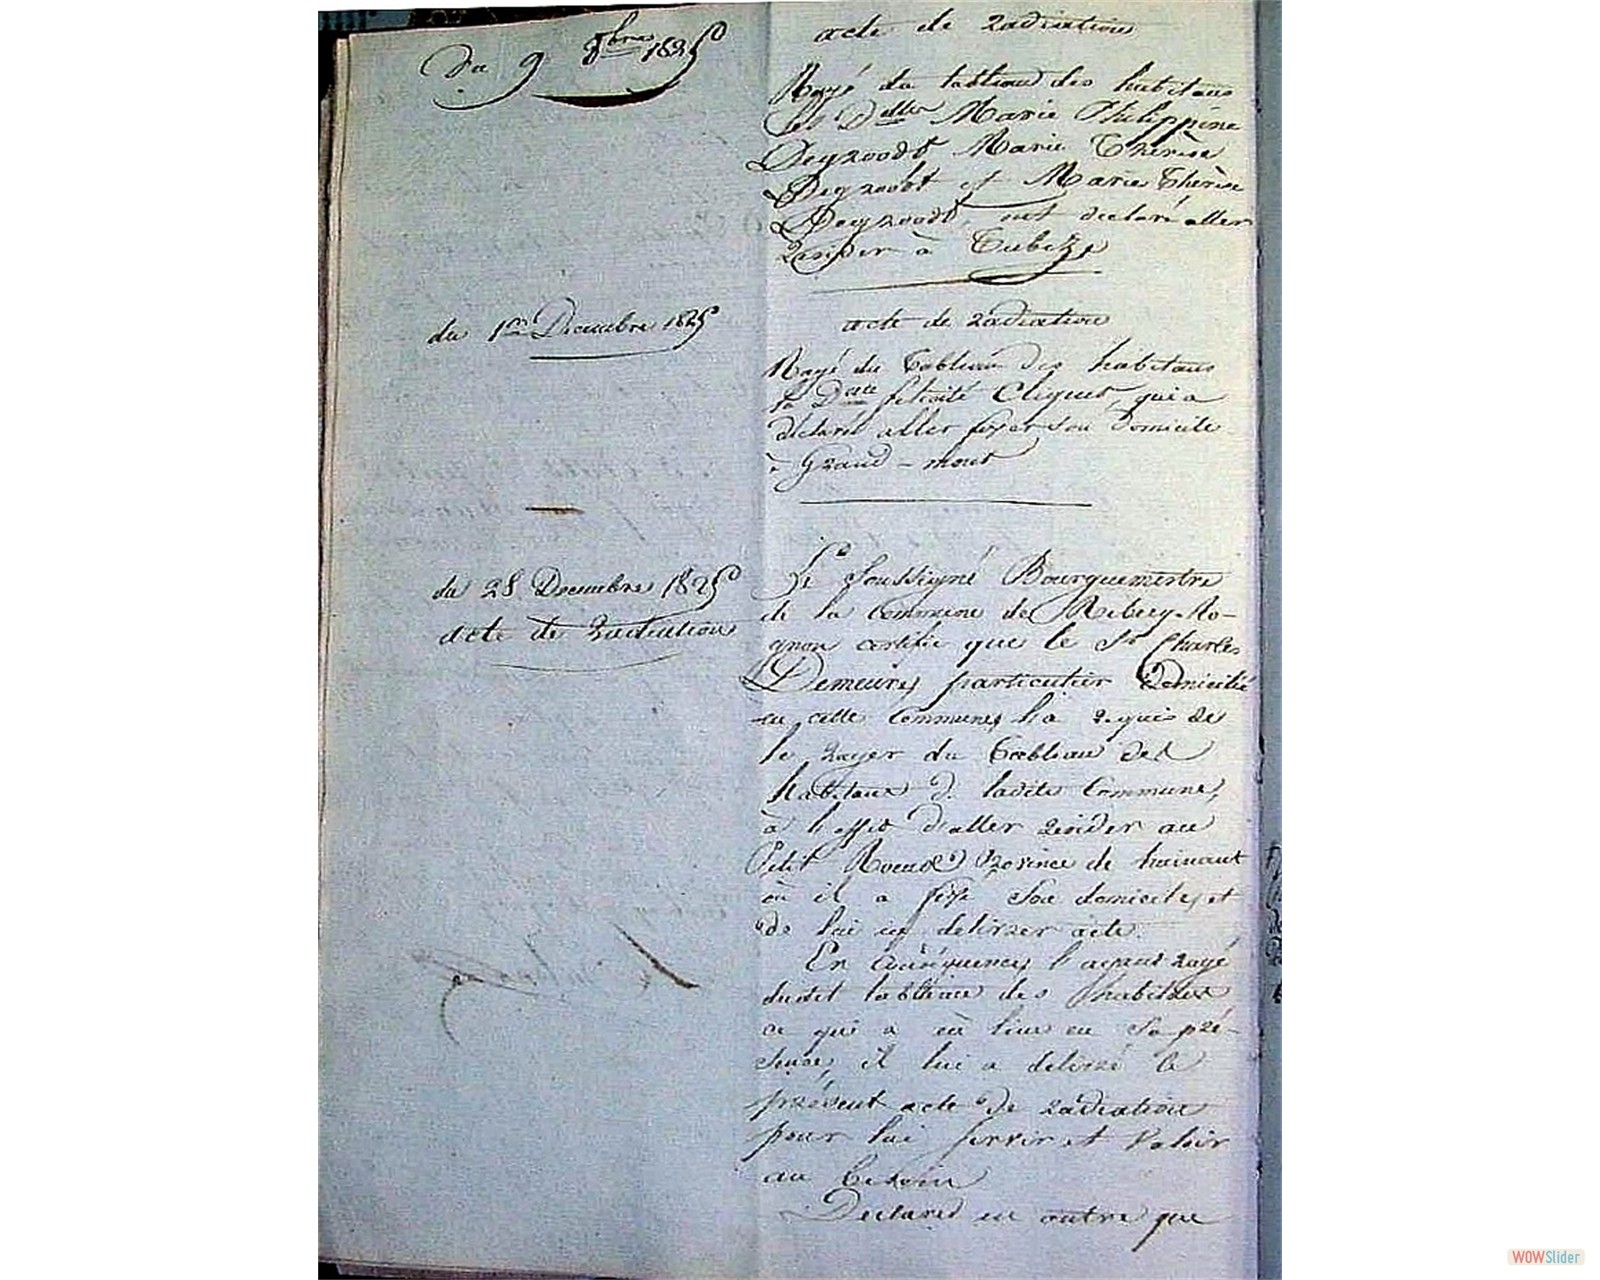 Du 9 8bre 1825
acte de radiation
Rayé du tableau des habitans
les Delles Marie Philippine
Degroodt Marie Thérèse
Degroodt et Marie Thérèse
Degroodt, ont déclaré aller
résider à Tubize
du 1er Decembre 1825
acte de radiation
Rayé du tableau des habitans
la Delle félicité Cliquet, qui a
déclaré aller fixer son domicile
à Grand-mont
du 28 Decembre 1825
acte de radiation
Le Soussigné Bourguemestre
de la Commune de Rebecq-Ro-
gnon certifie que le Sr Charles
Demeure, particulier Domicilié
en cette Commune, l'a requis de
le rayer du Tableau des
habitans de ladite Commune,
à l'effet d'aller résider au
Petit Roeulx Province de hainaut
où il a fixé son domicile, et
de lui en delivrer acte.
En Conséquence, l'ayant rayé
dudit tableau des habitans
ce qui a eu lieu en Sa pré-
sence, il lui a delivré le
présent acte de radiation
pour lui servir et valoir
au besoin
Declare en outre que
WOWSlider